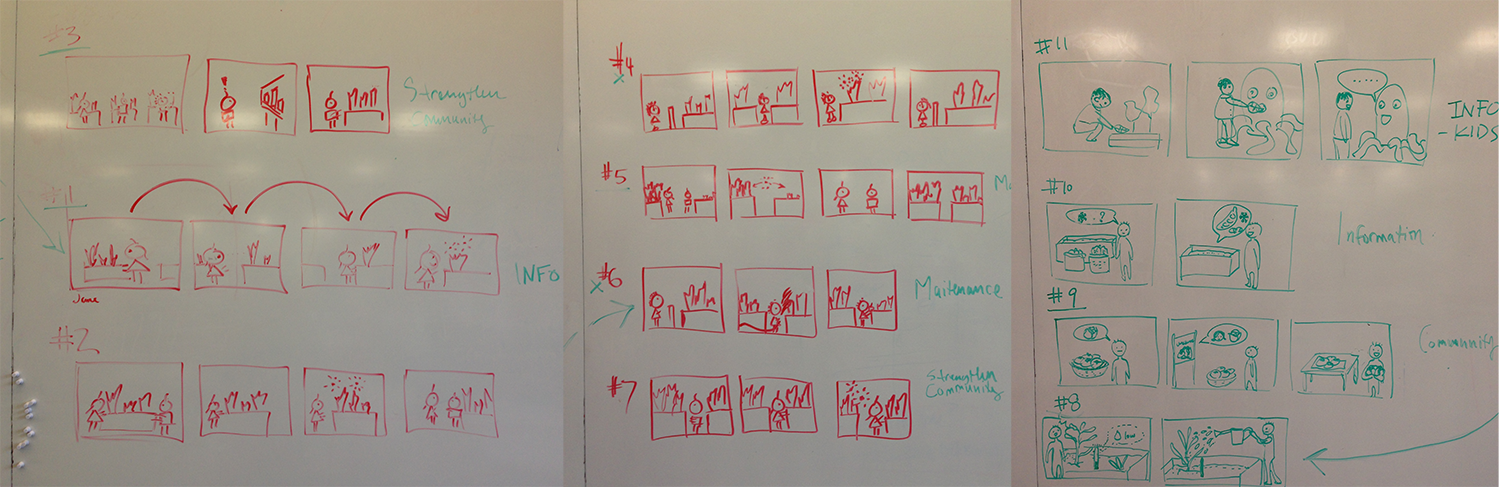 #3
Strengthen
Community
#1
INFO
Jane
#2
#4
x
#5
#6
x
Maitenance
#7
Strengthen
Community
#11
INFO
-KIDS
#10
* . ?
Information
#9
Community
#8
low